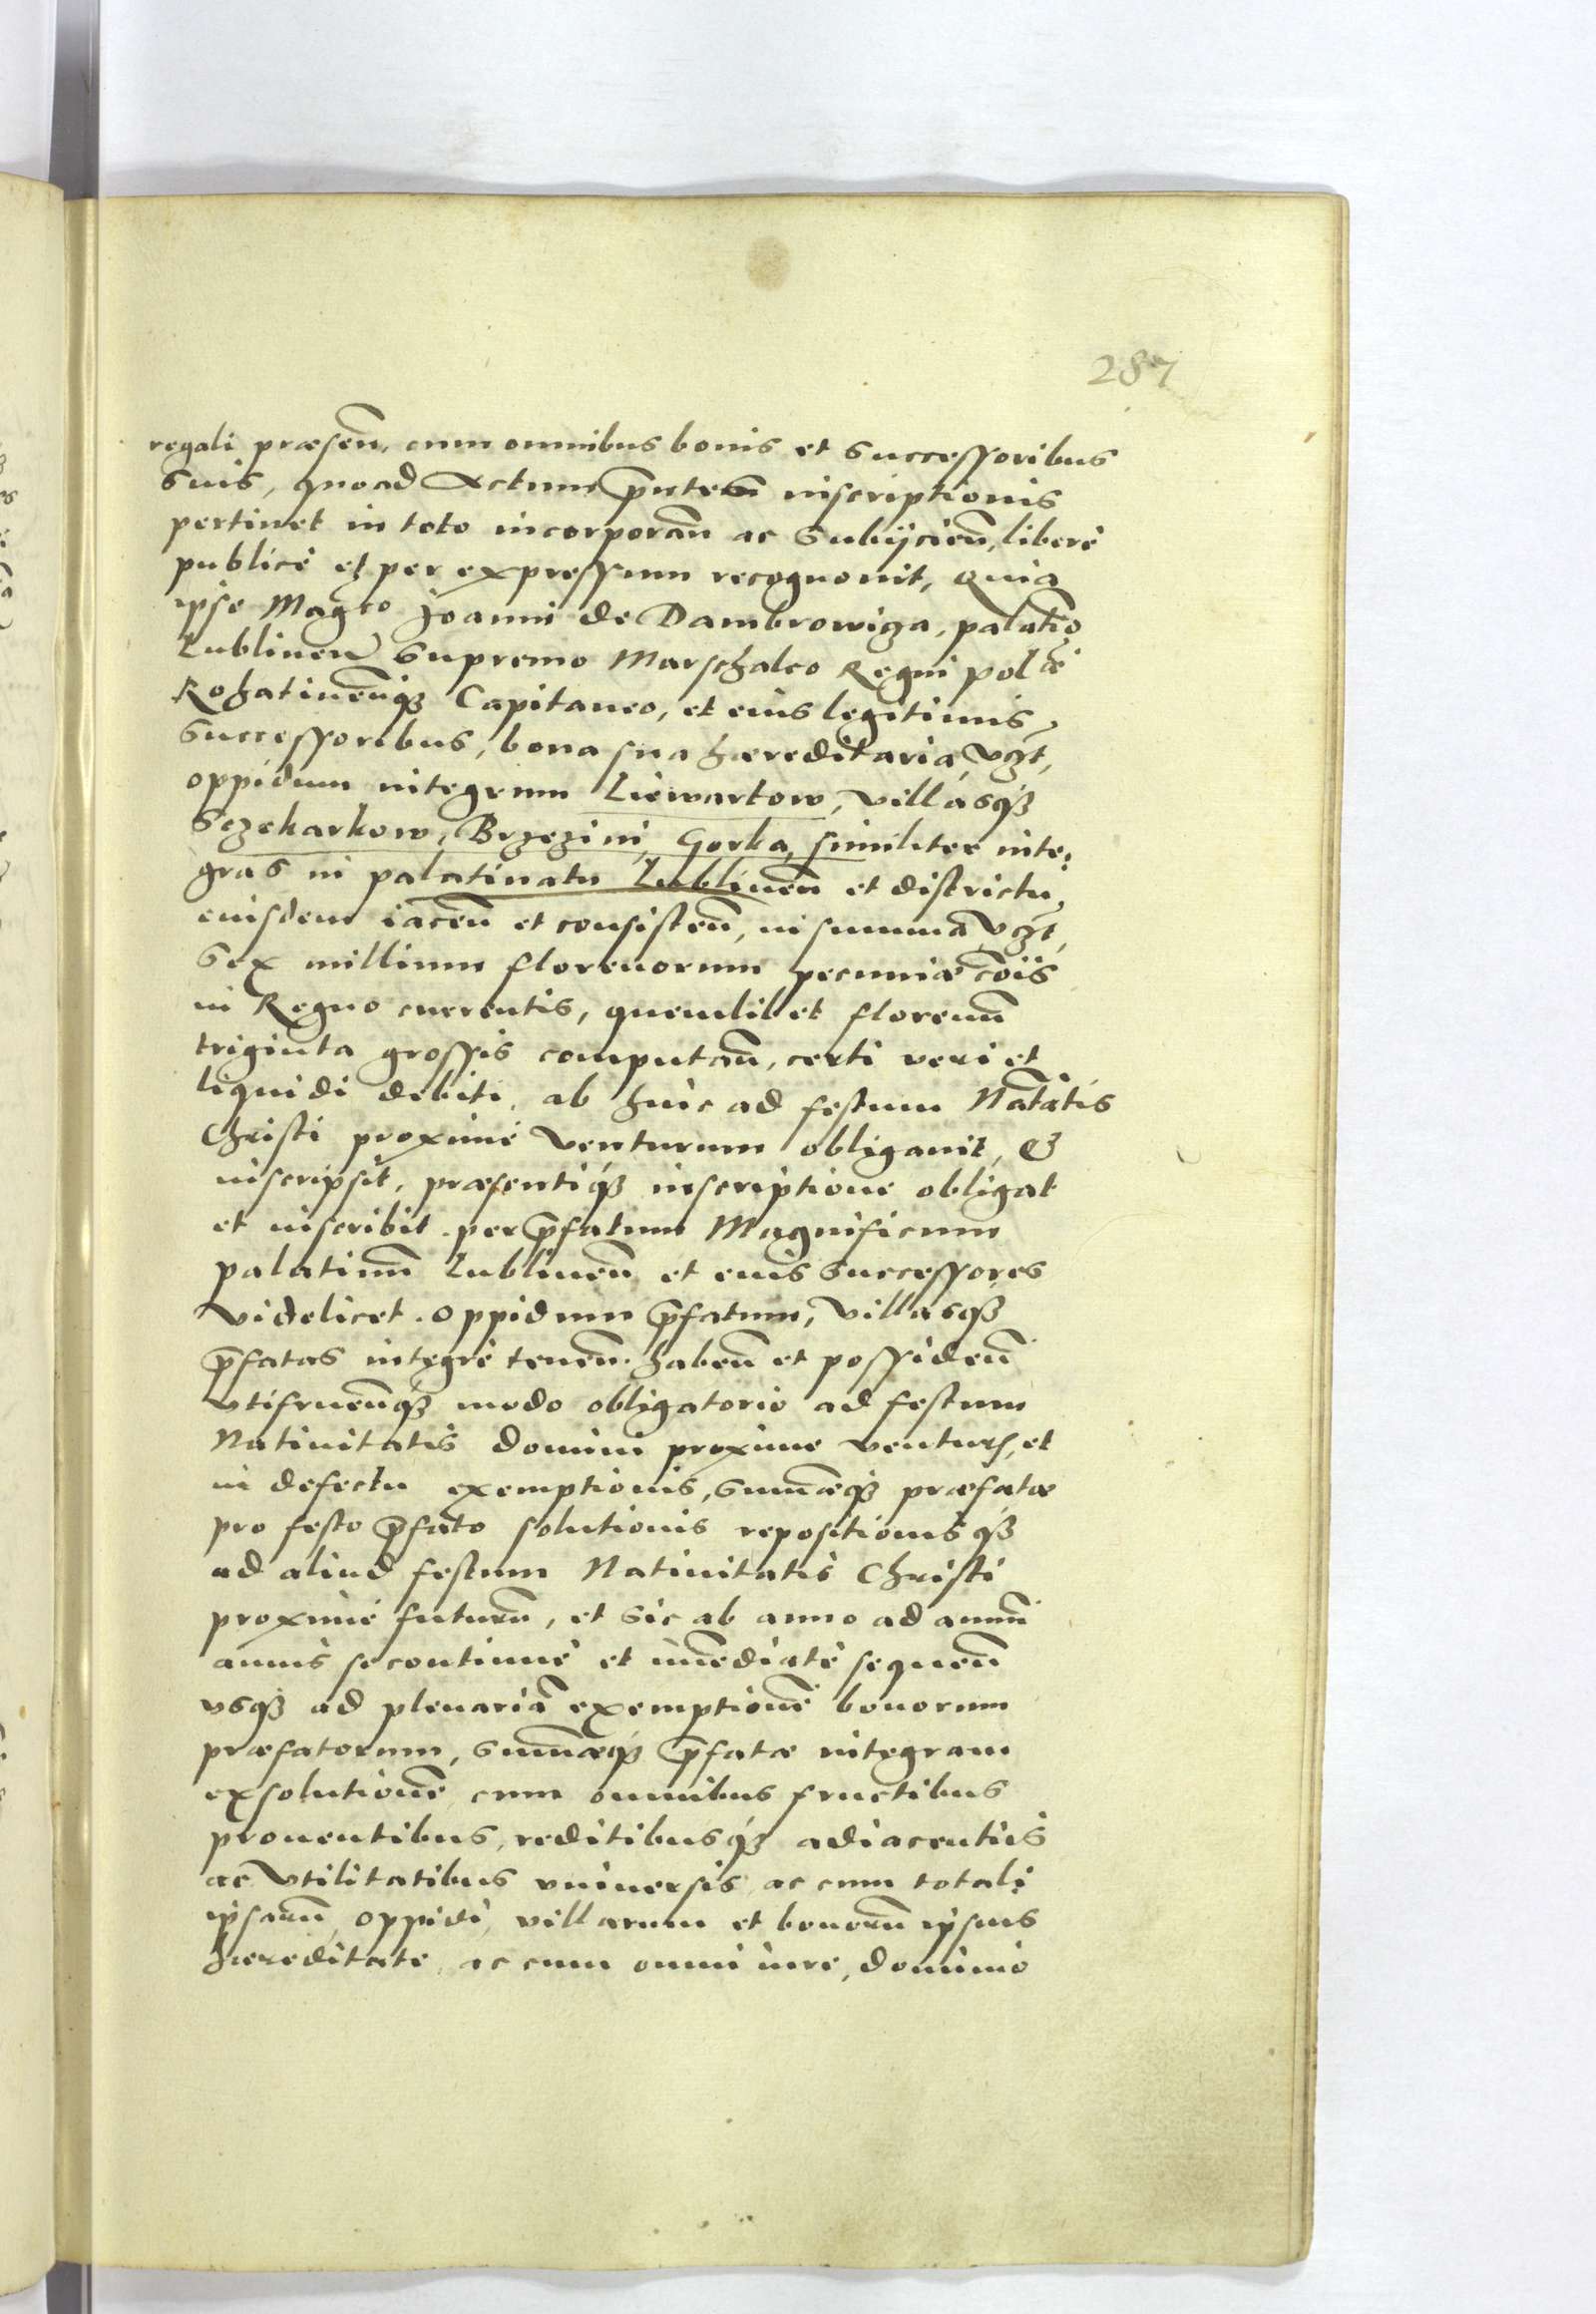 287
regali præsen̄, cum omnibus bonis et successoribus
suis, quoad Actum p̄ntem inscriptionis
pertinet in toto incorporan̄ ac subijcien̄, liberè
publicè et per expressum recognouit, Quia
ipse Magco Joanni de Dambrowiza, palatio
Lublinen̄ Supremo Marschalco Regni Poliæ
Rohatinen̄q₃ Capitaneo, et eius legitimis
successoribus, bona sua hæreditaria, vz̄t,
oppidum integrum Liewartow, villasq₃
Sczekarkow, Brzezini, Gorka, similiter inte:
gras in palatinatu Lublinen̄ et districtu
eiusdem iacen̄ et consisten̄, in summa, vz̄t,
Sex millium florenorum pecuniæ c̄ois
in Regno currentis, quemlibet florenū
triginta grossis computan̄, certi veri et
liquidi debiti, ab huic ad festum Natātis
Christi proximè venturum obligauit, &
inscripsit, præsentiq₃ inscriptione obligat
et inscribit. per p̄fatum Magnificum
palatinū Lublinen̄ et eius successores
videlicet. oppidum p̄fatum, villasq₃
p̄fatas integrè tenen̄. haben̄ et possiden̄
vtifruen̄q₃ modo obligatorio ad festum
Natiuitatis domini proxime ventur̄, et
in defectu exemptionis, sum̄æq₃ præfatæ
pro festo p̄fato solutionis repositionisq₃
ad aliud festum Natiuitatis Christi
proximè futurū, et sic ab anno ad annū
annis se continuè et im̄ediatè sequen̄
vsq₃ ad plenariā exemptionē bonorum
præfatorum, sum̄æq₃ p̄fatæ integram
exsolutionē, cum omnibus fructibus
prouentibus, reditibusq₃ adiacentiis
ac vtilitatibus vniuersis, ac cum totali
ipsarū, oppidi, villarum et bonorū ipsius
hæreditate, ac cum omni iure, dominio